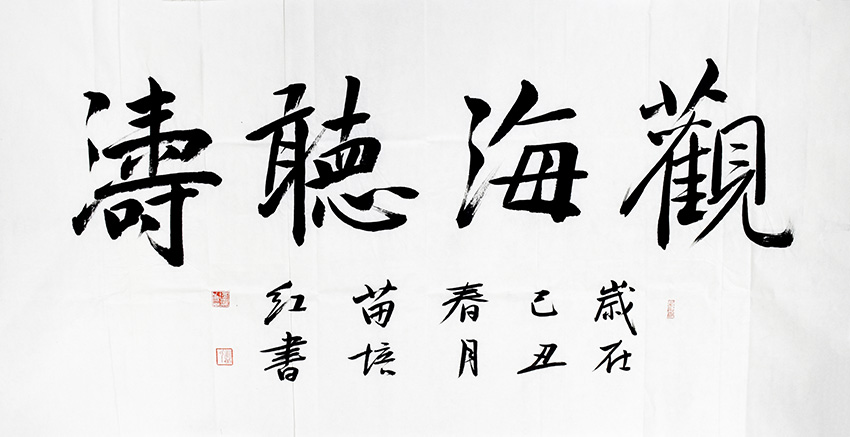 觀海聽濤
歲在
己丑
春月
苗培
红書